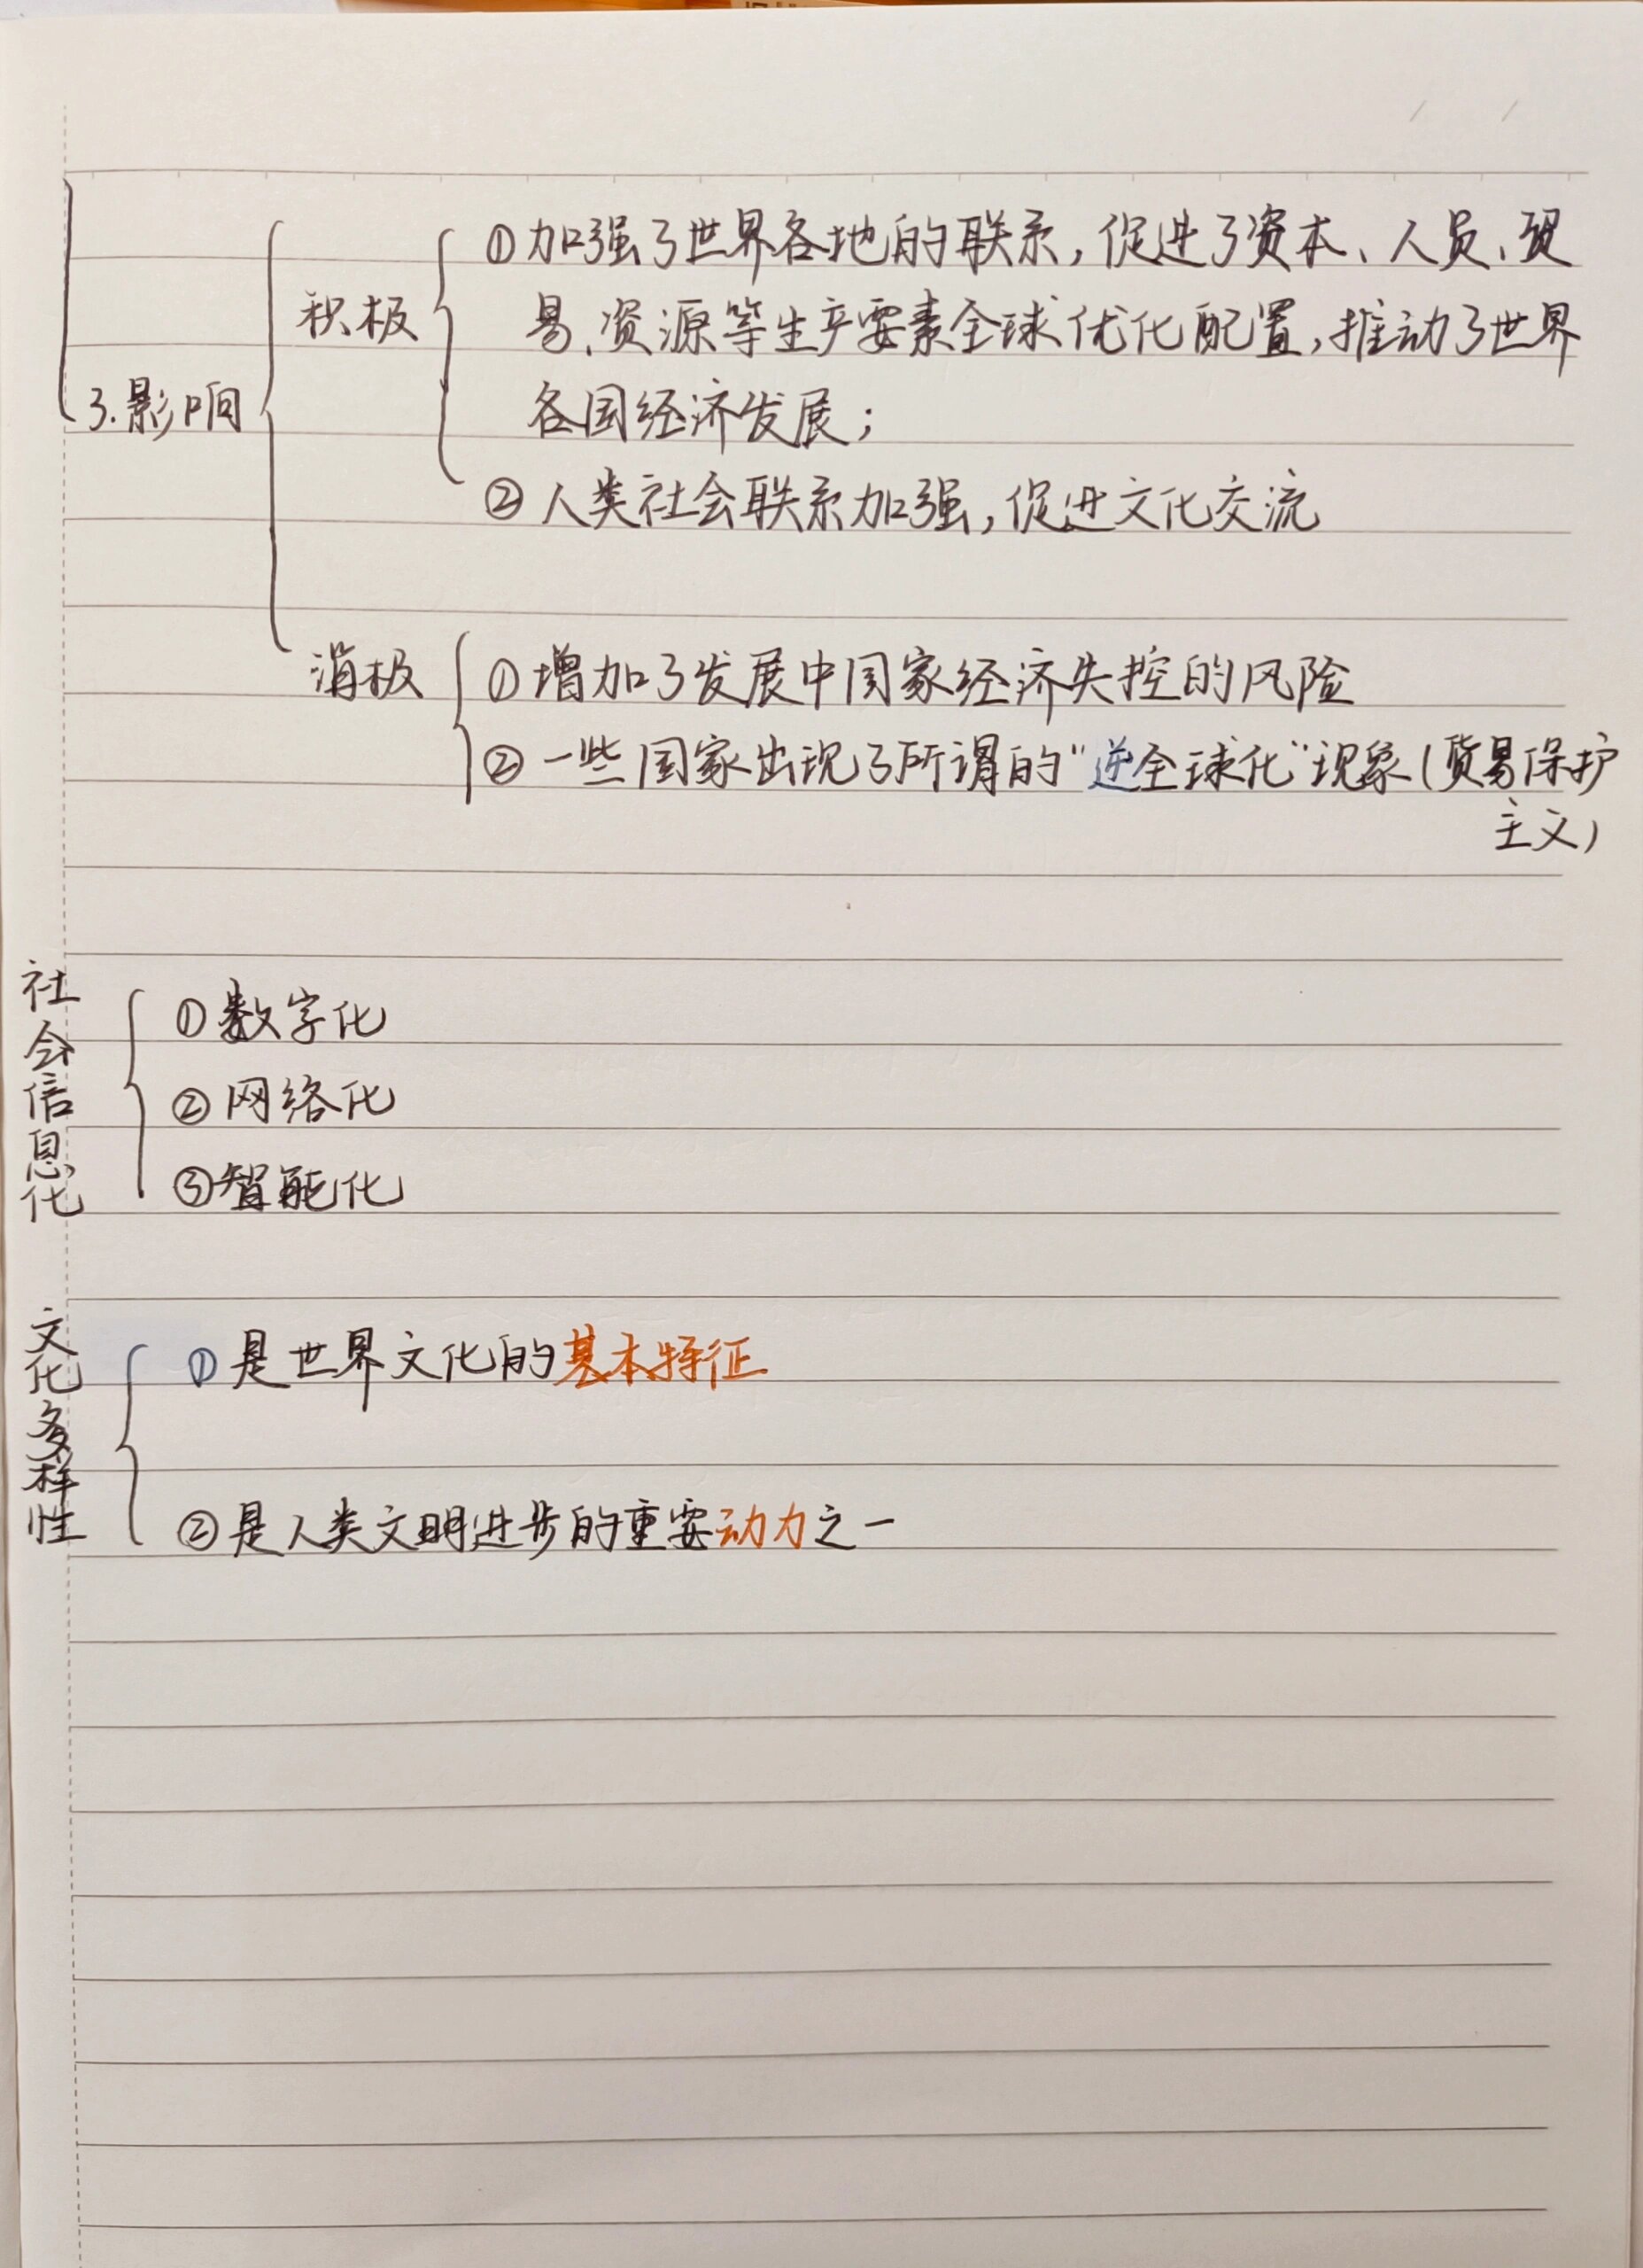 ①加强了世界各地的联系,促进了资本、人员、贸
积极
易、资源等生产要素全球优化配置,推动了世界
3.影响
各国经济发展;
②人类社会联系加强,促进文化交流
消极
①增加了发展中国家经济失控的风险
②一些国家出现了所谓的“逆全球化”现象(贸易保护
主义)
社会信息化
①数字化
②网络化
③智能化
文化多样性
①是世界文化的基本特征
②是人类文明进步的重要动力之一